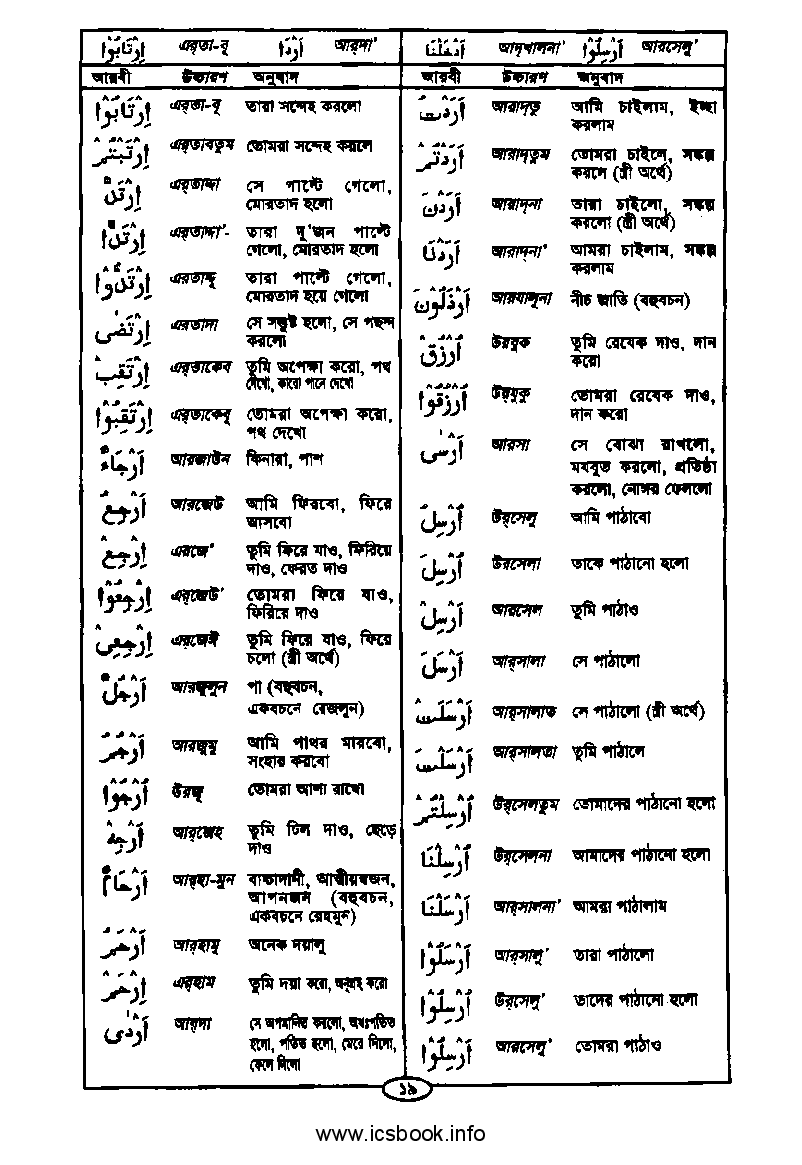 اِرْتَابُوْا এর্‌তা-বূ اَرْدَا আর্‌দা' اَدْخَلْنَا আদ্‌খালনা' اَرْسِلُوْا আরসেলু'
আরবী উচ্চারণ অনুবাদ আরবী উচ্চারণ অনুবাদ
اِرْتَابُوْا এর্‌তা-বূ তারা সন্দেহ করলো
اِرْتَبْتُمْ এর্‌তাবতুম তোমরা সন্দেহ করলে
اِرْتَدَّ এর্‌তাদ্দা সে পাল্টে গেলো,
মোরতাদ হলো
اِرْتَدَّا এর্‌তাদ্দা'- তারা দু'জন পাল্টে
গেলো, মোরতাদ হলো
اِرْتَدُّوْا এর্‌তাদ্দু তারা পাল্টে গেলো,
মোরতাদ হয়ে গেলো
اِرْتَضٰى এরতাদা সে সন্তুষ্ট হলো, সে পছন্দ
করলো
اِرْتَقِبْ এর্‌তাকেব তুমি অপেক্ষা করো, পথ
দেখো, কারো পানে দেখো
اِرْتَقِبُوْا এর্‌তাকেবু তোমরা অপেক্ষা করো,
পথ দেখো
اَرْجَاءٌ আরজাউন কিনারা, পাশ
اَرْجِعُ আরজেউ আমি ফিরবো, ফিরে
আসবো
اِرْجِعْ এরজে' তুমি ফিরে যাও, ফিরিয়ে
দাও, ফেরত দাও
اِرْجِعُوْا এর্‌জেউ' তোমরা ফিরে যাও,
ফিরিরে দাও
اِرْجِعِىْ এর্‌জেঈ তুমি ফিরে যাও, ফিরে
চলো (স্ত্রী অর্থে)
اَرْجُلٌ আরজুলুন পা (বহুবচন,
একবচনে রেজলুন)
اَرْجُمُ আরজুমু আমি পাথর মারবো,
সংহার করবো
اُرْجُوْا উরজূ তোমরা আশা রাখো
اَرْجِهْ আর্‌জেহ তুমি ঢিল দাও, ছেড়ে
দাও
اَرْحَامٌ আর্‌হা-মুন বাচ্চাদানী, আত্মীয়স্বজন,
আপনজন (বহুবচন,
একবচনে রেহমুন)
اَرْحَمُ আর্‌হামু অনেক দয়ালু
اِرْحَمْ এর্‌হাম তুমি দয়া করো, অনুগ্রহ করো
اَرْدٰى আর্‌দা সে অপমানিত করলো, অধঃপতিত
হলো, পতিত হলো, মেরে দিলো,
ফেলে দিলো
اَرَدْتُ আরাদ্‌তু আমি চাইলাম, ইচ্ছা
করলাম
اَرَدْتُمْ আরাদ্‌তুম তোমরা চাইলে, সঙ্কল্প
করলে (স্ত্রী অর্থে)
اَرَدْنَ আরাদ্‌না তারা চাইলো, সঙ্কল্প
করলো (স্ত্রী অর্থে)
اَرَدْنَا আরাদ্‌না' আমরা চাইলাম, সঙ্কল্প
করলাম
اَرْذَلُوْنَ আরযালুনা নীচ জাতি (বহুবচন)
اُرْزُقْ উরযুক তুমি রেযেক দাও, দান
করো
اُرْزُقُوْا উরযুকু তোমরা রেযেক দাও,
দান করো
اَرْسٰى আরসা সে বোঝা রাখলো,
মযবুত করলো, প্রতিষ্ঠা
করলো, নোঙ্গর ফেললো
اُرْسِلُ উরসেলু আমি পাঠাবো
اُرْسِلَ উরসেলা তাকে পাঠানো হলো
اَرْسِلْ আরসেল তুমি পাঠাও
اَرْسَلَ আর্‌সালা সে পাঠালো
اَرْسَلَتْ আর্‌সালাত সে পাঠালো (স্ত্রী অর্থে)
اَرْسَلْتَ আর্‌সালতা তুমি পাঠালে
اُرْسِلْتُمْ উর্‌সেলতুম তোমাদের পাঠানো হলো
اُرْسِلْنَا উরসেলনা আমাদের পাঠানো হলো
اَرْسَلْنَا আর্‌সালনা' আমরা পাঠালাম
اَرْسَلُوْا আর্‌সালু' তারা পাঠালো
اُرْسِلُوْا উর্‌সেলু' তাদের পাঠানো হলো
اَرْسِلُوْا আরসেলু' তোমরা পাঠাও
১৯
www.icsbook.info